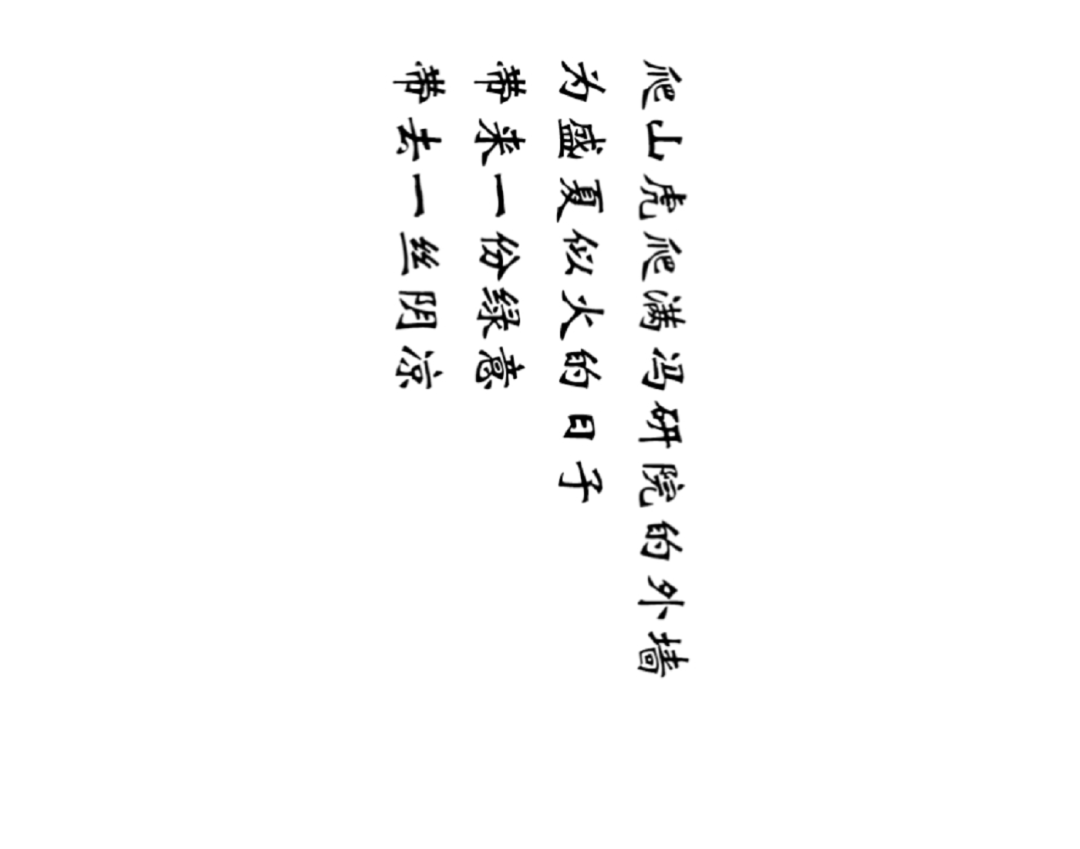 爬山虎爬满冯研院的外墙
为盛夏似火的日子
带来一份綠意
带去一丝阴凉